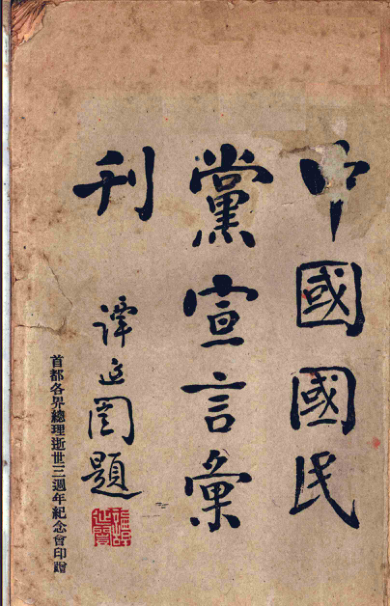 中國國民
黨宣言彙
刊
譚延闓題
首都各界總理逝世三週年紀念會印贈